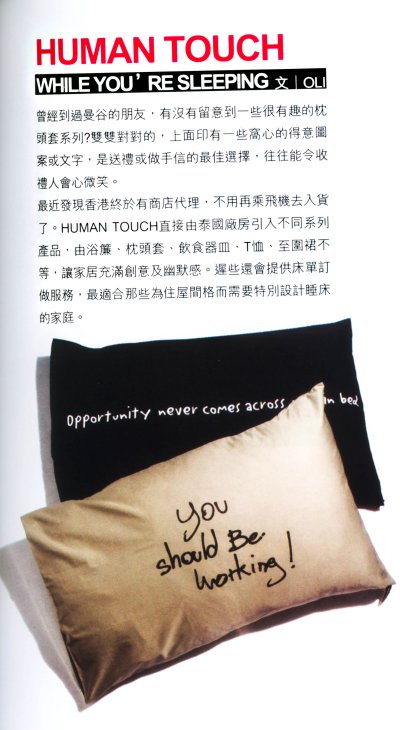 HUMAN TOUCH
WHILE YOU'RE SLEEPING 文｜OLI
曾經到過曼谷的朋友，有沒有留意到一些很有趣的枕
頭套系列?雙雙對對的，上面印有一些窩心的得意圖
案或文字，是送禮或做手信的最佳選擇，往往能令收
禮人會心微笑。
最近發現香港終於有商店代理，不用再乘飛機去入貨
了。HUMAN TOUCH直接由泰國廠房引入不同系列
產品，由浴簾、枕頭套、飲食器皿、T恤、至圍裙不
等，讓家居充滿創意及幽默感。遲些還會提供床單訂
做服務，最適合那些為住屋間格而需要特別設計睡床
的家庭。
Opportunity never comes across in bed
you
should Be
working!